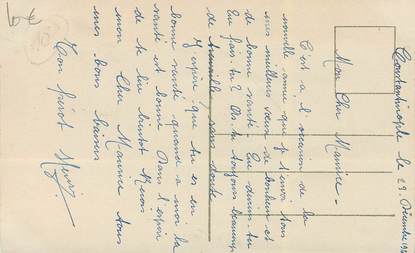 Constantinople le 29 Décembre
Mon Cher Maurice.
C'est a l'occasion de la
nouvelle année que je t'envoi tous
mes meilleurs vœux de bonheur et
de bonne santé. Que devien-tu
Que fais-tu? As-tu toujours beaucoup
de travaille sans doute
J'espère que tu es en
bonne santé quand a moi la
santé est bonne Dans l'espoir
de te lire bientot Reçois
mon Cher Maurice tous
mes bons baisers
Ton frérot Henry